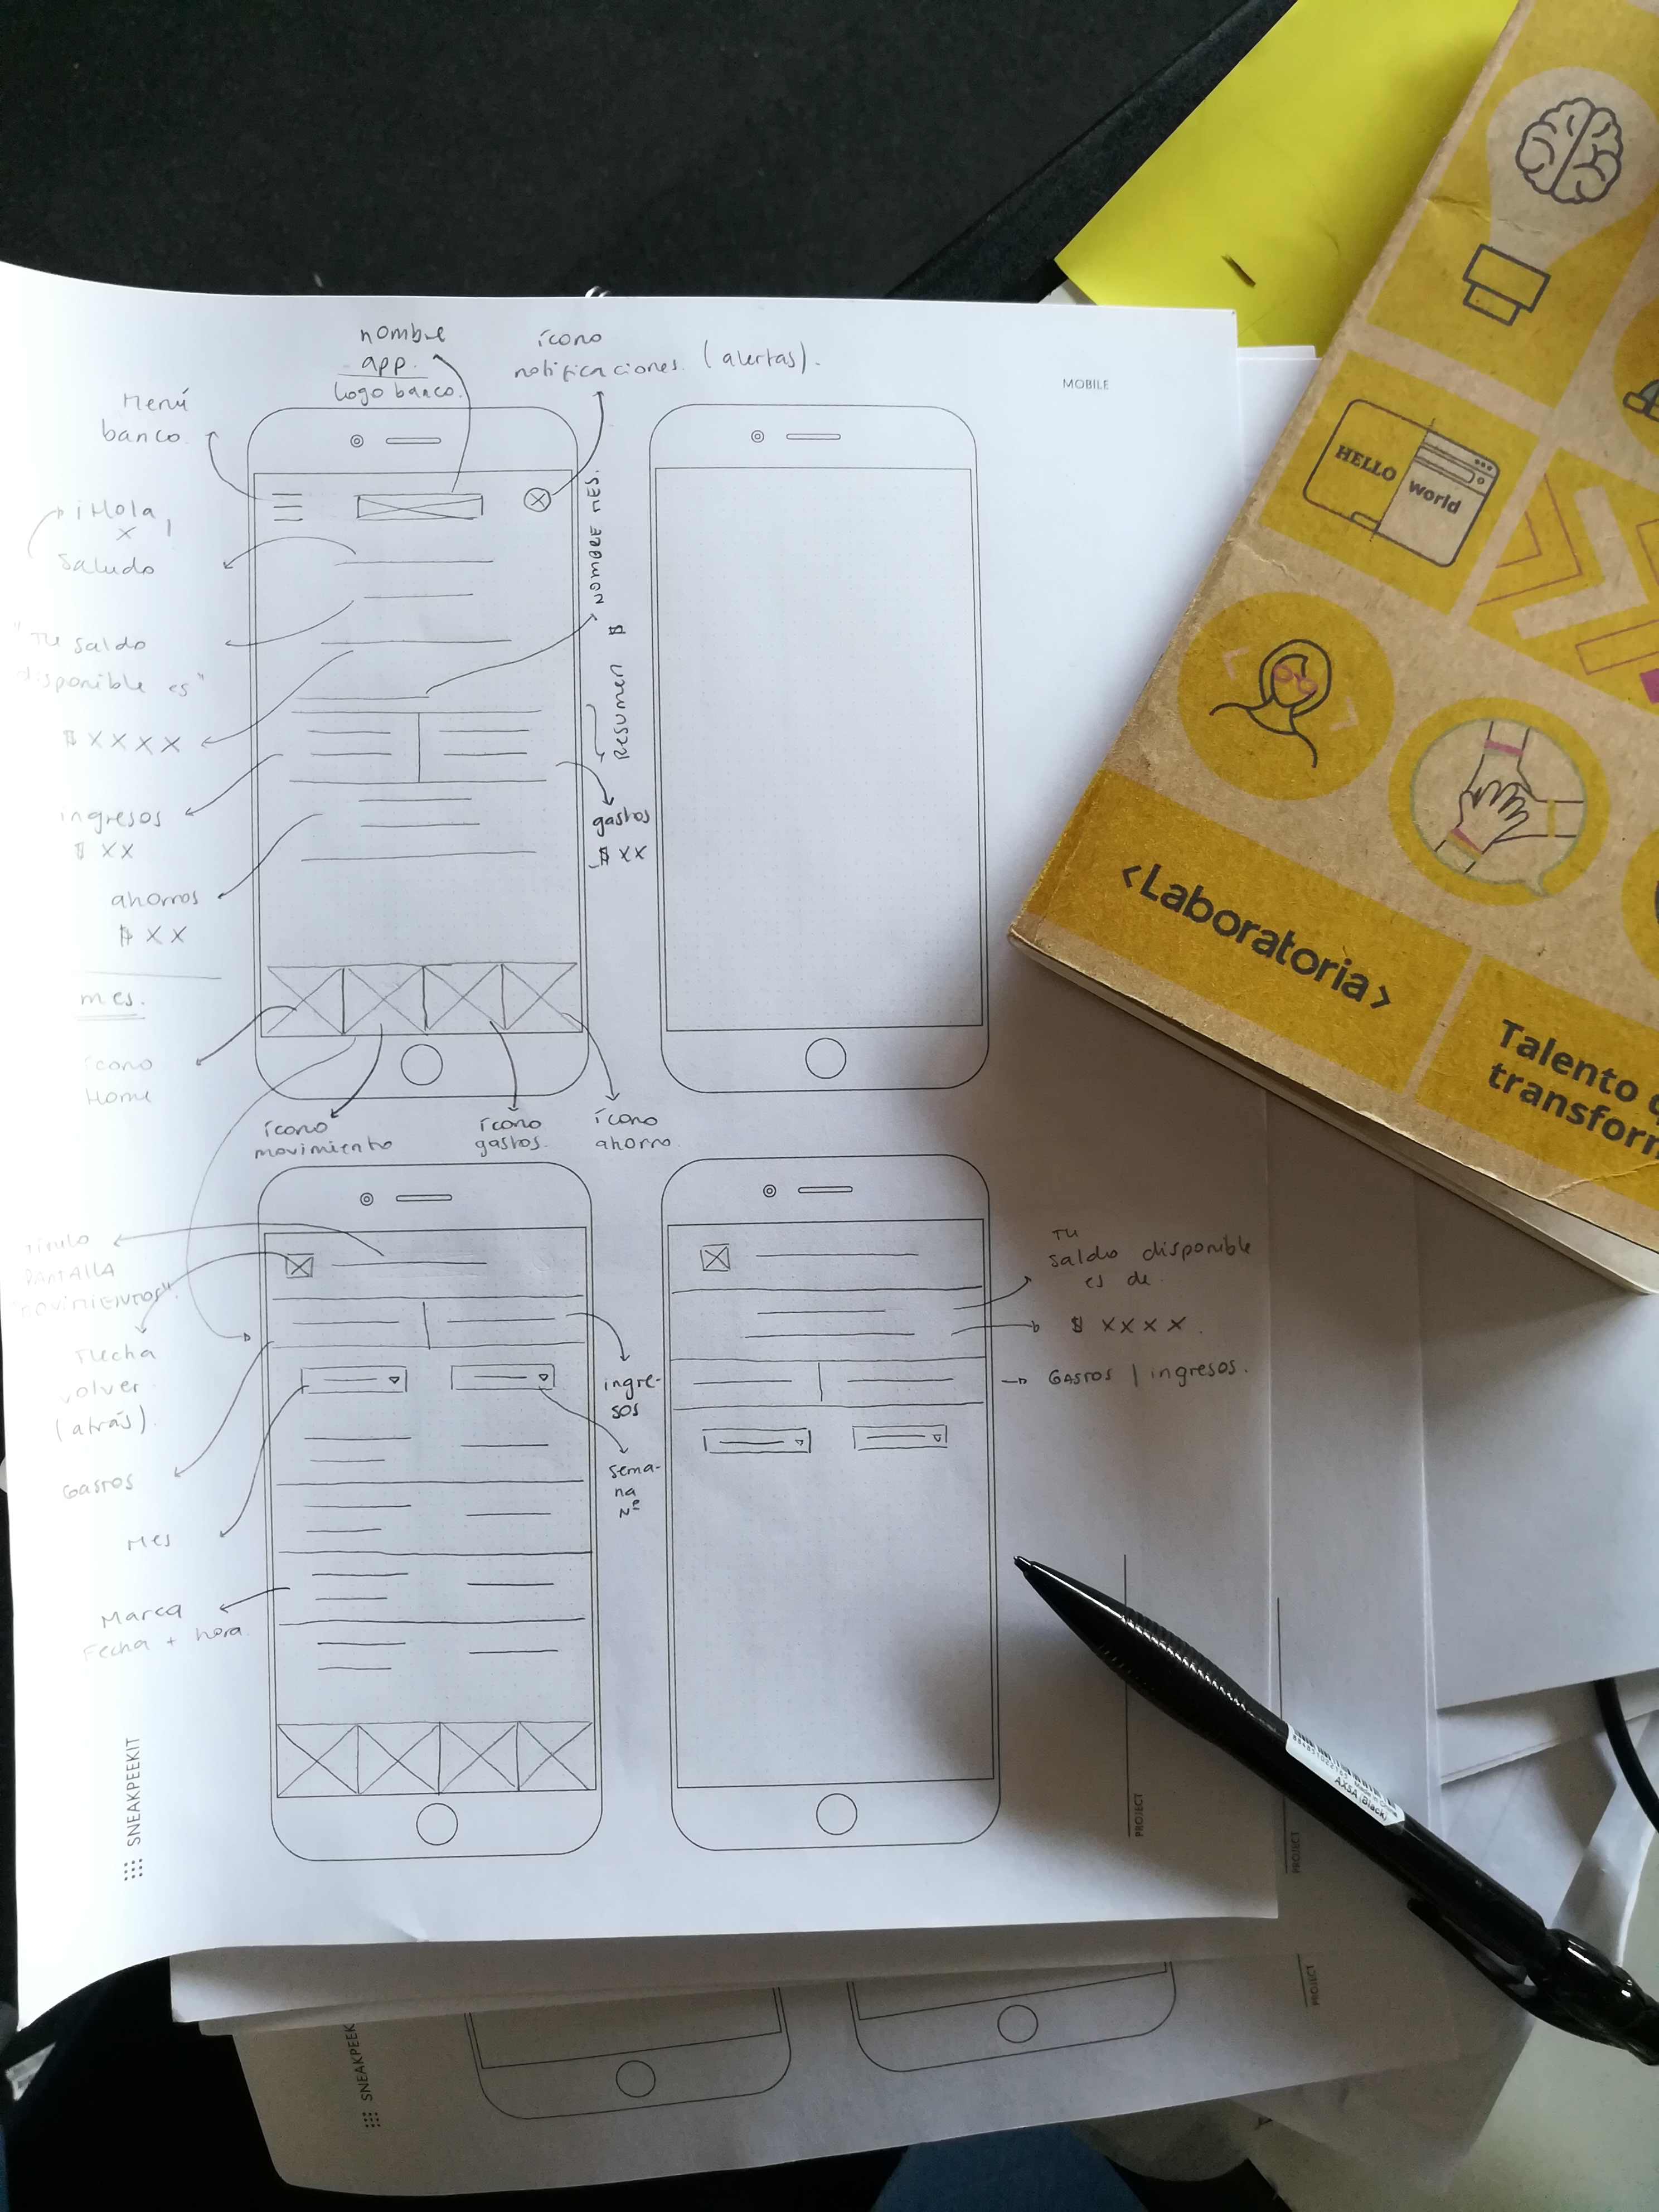 nombre
app.
logo banco.
ícono
notificaciones. (alertas).
MOBILE
Menú
banco.
¡Hola
x !
Saludo
"Tu saldo
disponible es"
$ X X X X
ingresos
$ XX
ahorros
$ XX
mes.
ícono
Home
NOMBRE MES.
Resumen $
gastos
$ XX
ícono
movimiento
ícono
gastos.
ícono
ahorro.
Título
PANTALLA
"MOVIMIENTOS".
Flecha
volver
(atrás).
Gastos
Mes
Marca
Fecha + hora.
ingre-
sos
sema-
na
Nº
Tu
saldo disponible
es de.
$ X X X X.
GASTOS | ingresos.
SNEAKPEEKIT
PROJECT
PROJECT
PROJECT
SNEAKPEEK
HELLO
world
<Laboratoria>
Talento q
transform
AXSA (Black)